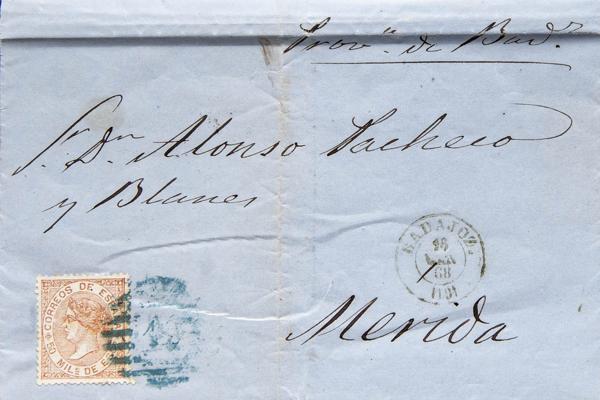 Prov.ª de Bad.z
Sr. Dn. Alonso Pacheco
y Blanes
BADAJOZ
68
(19)
Merida
CORREOS DE ESP
50 MILS DE E